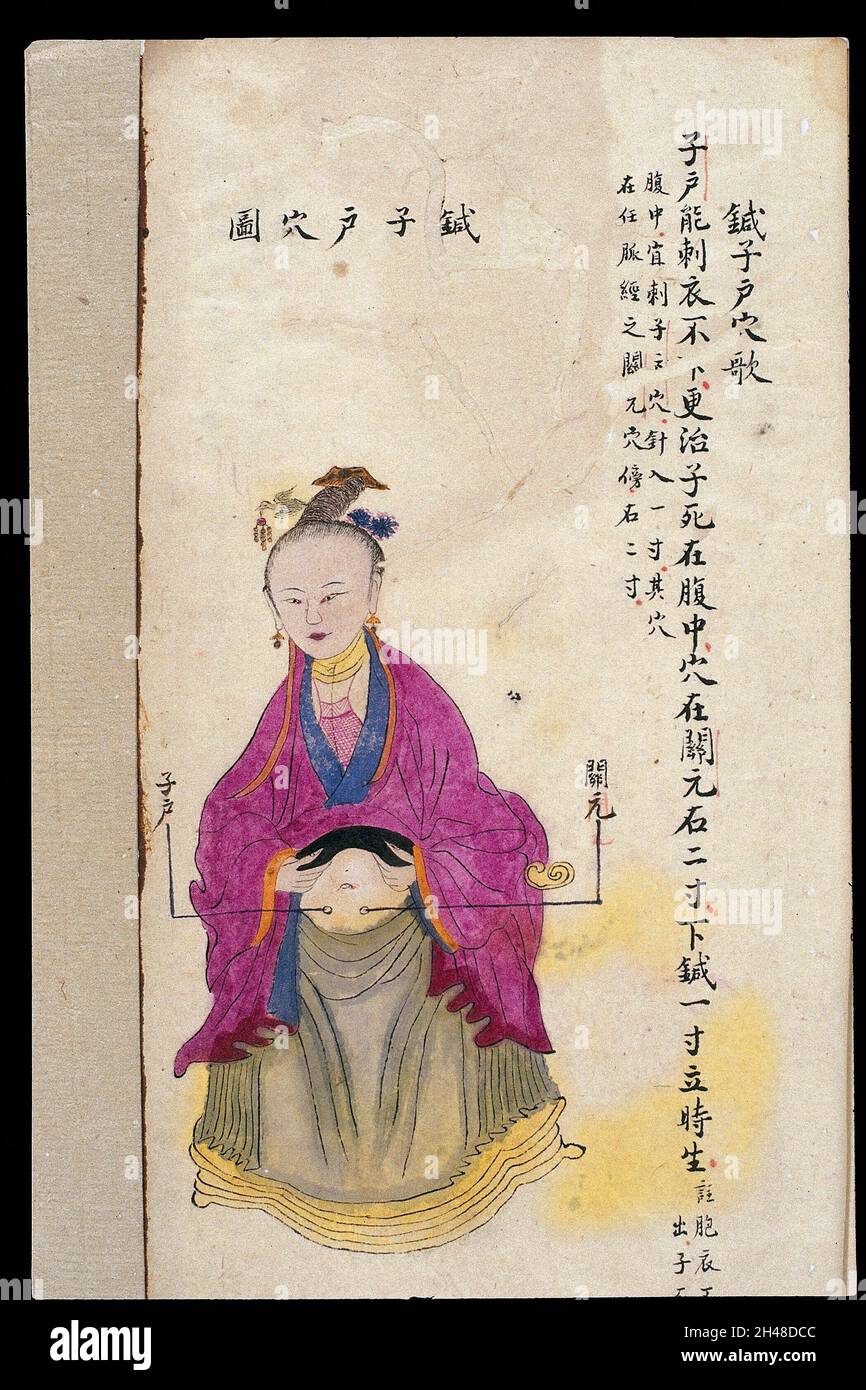 鍼子戶穴歌
子戶能刺衣不下更治子死在腹中穴在關元右二寸下鍼一寸立時生
註胞衣不
出子死
腹中宜刺子戶穴針入一寸其穴
在任脈經之關元穴傍右二寸
鍼子戶穴圖
關元
子戶
alamy
alamy
Image ID: 2H48DCC
www.alamy.com